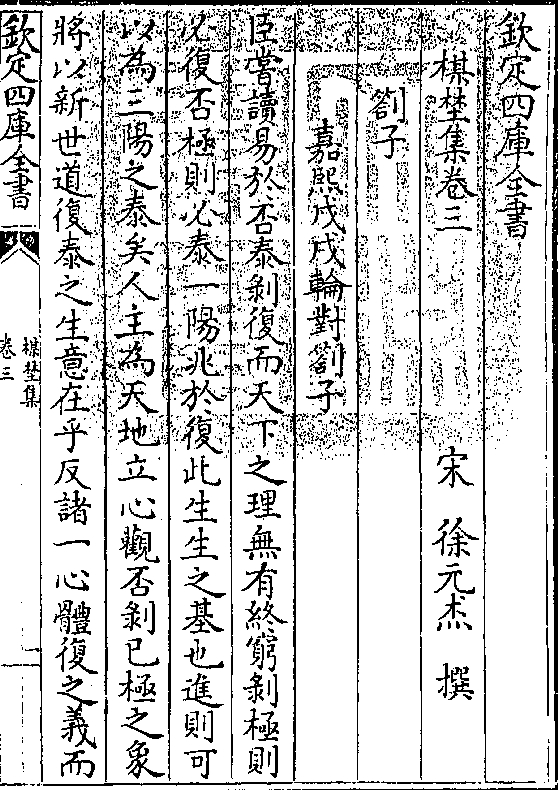 欽定四庫全書
楳埜集卷三
宋 徐元杰 撰
劄子
嘉熙戊戌輪對劄子
臣嘗讀易於否泰剝復而天下之理無有終窮剝極則
必復否極則必泰一陽兆於復此生生之基也進則可
以為三陽之泰矣人主為天地立心觀否剝已極之象
將以新世道復泰之生意在乎反諸一心體復之義而
欽定四庫全書
楳埜集
卷三
一